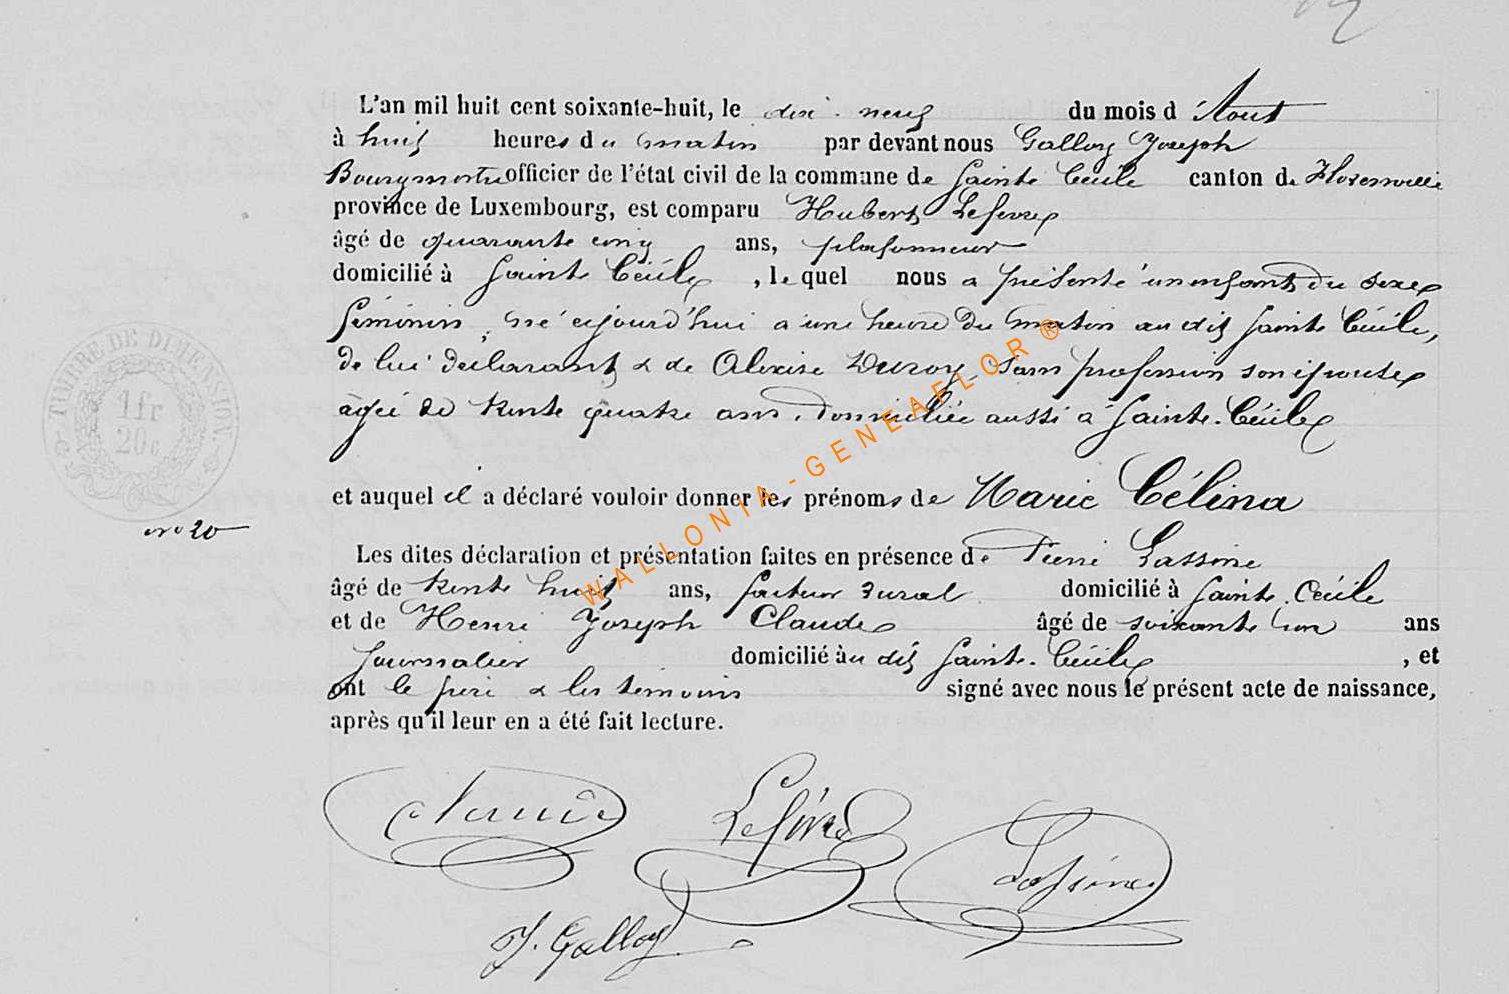 L'an mil huit cent soixante-huit, le dix-neuf du mois d'Aout
à huit heures du matin par devant nous Galloy Joseph
Bourgmestre officier de l'état civil de la commune de Sainte Cécile canton de Florenville
province de Luxembourg, est comparu Hubert Lefevre
âgé de quarante cinq ans, plafonneur
domicilié à Sainte Cécile, le quel nous a présenté un enfant du sexe
féminin, né aujourd'hui à une heure du matin au dit Sainte Cécile,
de lui déclarant & de Alexise Duroy sans profession son épouse
âgée de trente quatre ans, domiciliée aussi à Sainte-Cécile
et auquel il a déclaré vouloir donner les prénoms de Marie Célina
TIMBRE DE DIMENSION.
1 fr
20c
no 20
Les dites déclaration et présentation faites en présence de Pierre Lassine
âgé de trente huit ans, facteur rural domicilié à Sainte-Cécile
et de Henri Joseph Claude âgé de soixante un ans
journalier domicilié au dit Sainte-Cécile, et
ont le père & les témoins signé avec nous le présent acte de naissance,
après qu'il leur en a été fait lecture.
Claude Lefèvre
Lassine
J. Galloy
WALLONIA-GENEAFLOR®